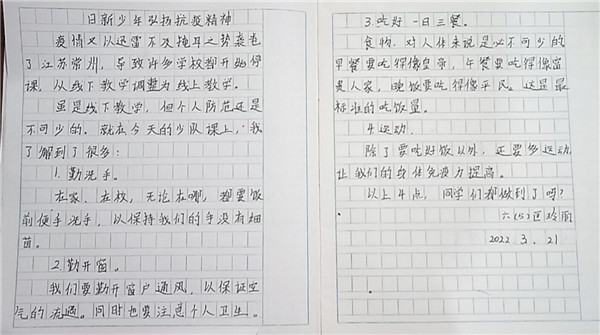 日新少年弘扬抗疫精神
疫情又以迅雷不及掩耳之势袭卷
了江苏常州，导致许多学校都开始停
课，从线下教学调整为线上教学。
虽是线下教学，但个人防范还是
不可少的。就在今天的少队课上，我
了解到了很多：
1.勤洗手。
在家、在校，无论在哪，都要饭
前便手洗手，以保持我们的手没有细
菌。
2.勤开窗。
我们要勤开窗户通风，以保证空
气的流通。同时也要注意个人卫生。
3.吃好一日三餐。
食物，对人体来说是必不可少的
早餐要吃得像皇帝，午餐要吃得像富
贵人家，晚饭要吃得像平民。这是最
标准的吃饭量。
4.运动.
除了要吃好饭以外，还要多运动
让我们的身体免疫力提高。
以上4点，同学们都做到了吗？
六(5)匡玲丽
2022 3. 21